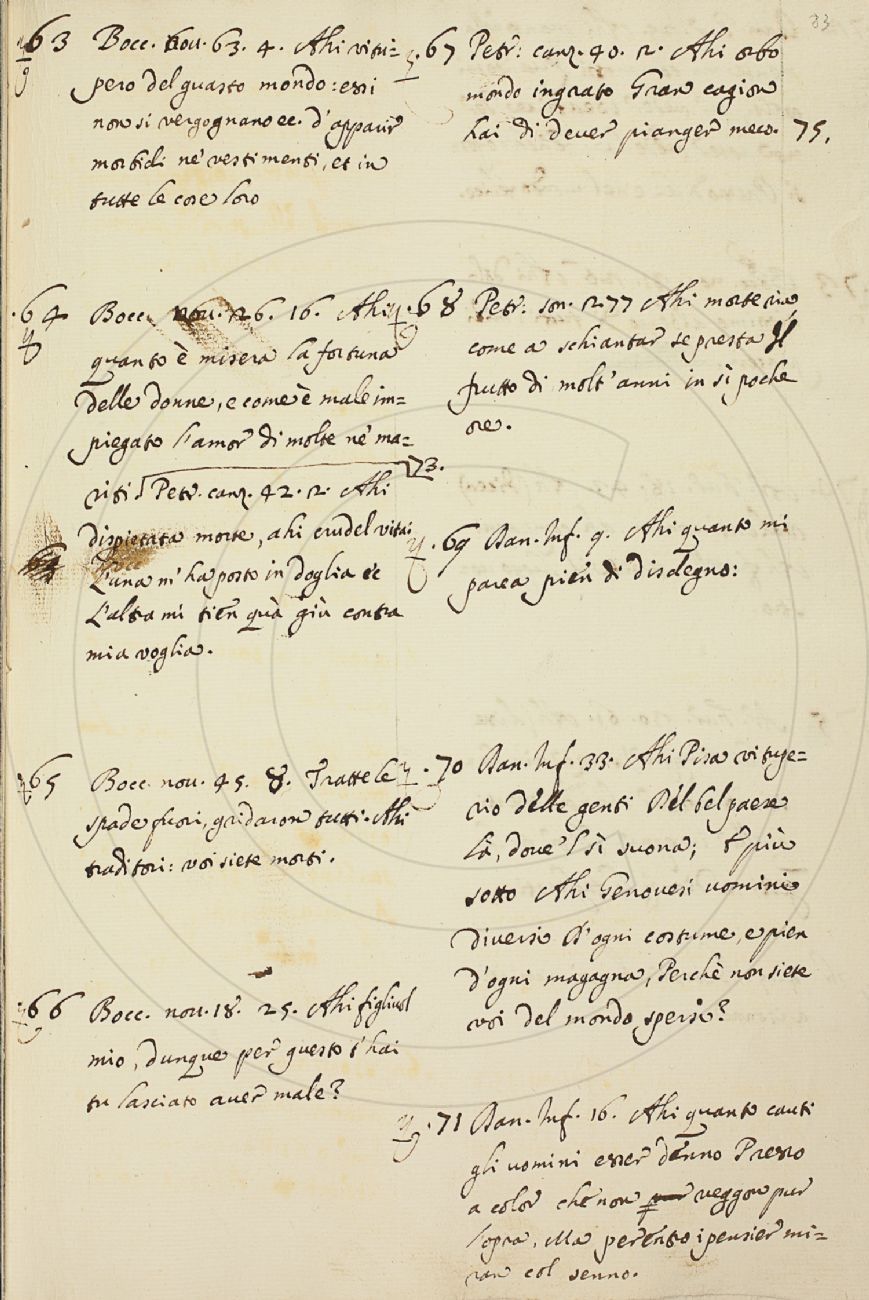 83
63 Bocc. nou. 63. 4. Ahi vitu=
pero del guasto mondo: essi
non si vergognano ec. d'apparir
morbidi ne' vestimenti, et in
tutte le cose loro
.64 Bocc. nou. 26. 16. Ahi
quanto è misera la fortuna
delle donne, e come è male im=
piegato l'amor di molte ne' ma=
riti
73.
Petr. canz. 42. 2. Ahi
dispietata morte, ahi crudel vita:
L'una m'ha posto in doglia etc
L'altra mi tien quà giù contra
mia voglia.
65 Bocc. nou. 45. 8. Tratte le
spade fuori, gridaron tutti. Ahi
traditori: voi siete morti.
66 Bocc. nou. 18. 25. Ahi figliuol
mio, dunque per questo t'hai
tu lasciato auer male?
.67 Petr: canz. 40. 2. Ahi orbo
mondo ingrato Gran cagion
hai di deuer pianger meco. 75.
.68 Petr: son. 277 Ahi morte ria,
come a schiantar se presta Il
frutto di molt'anni in sì poche
ore.
.69 Dan. Inf. 9. Ahi quanto mi
parea pien di disdegno:
.70 Dan. Inf. 33. Ahi Pisa vitupe=
rio delle genti Del bel paese
là, doue 'l sì suona; E più
sotto Ahi Genouesi uomini
diversi D'ogni costume, e pien
d'ogni magagna, Perchè non siete
voi del mondo spersi?
.71 Dan. Inf. 16. Ahi quanto cauti
gli uomini esser denno Presso
a color che non veggon pur
l'opra, Ma per entro i pensier mi=
ran col senno.